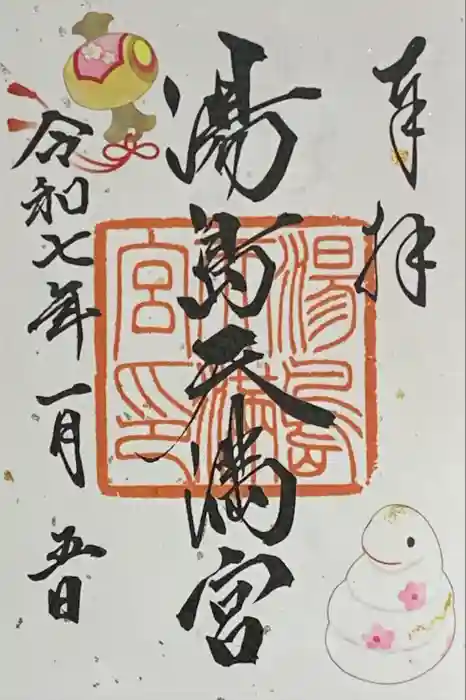 奉拝
湯島天満宮
湯島
天満
宮印
令和七年一月五日